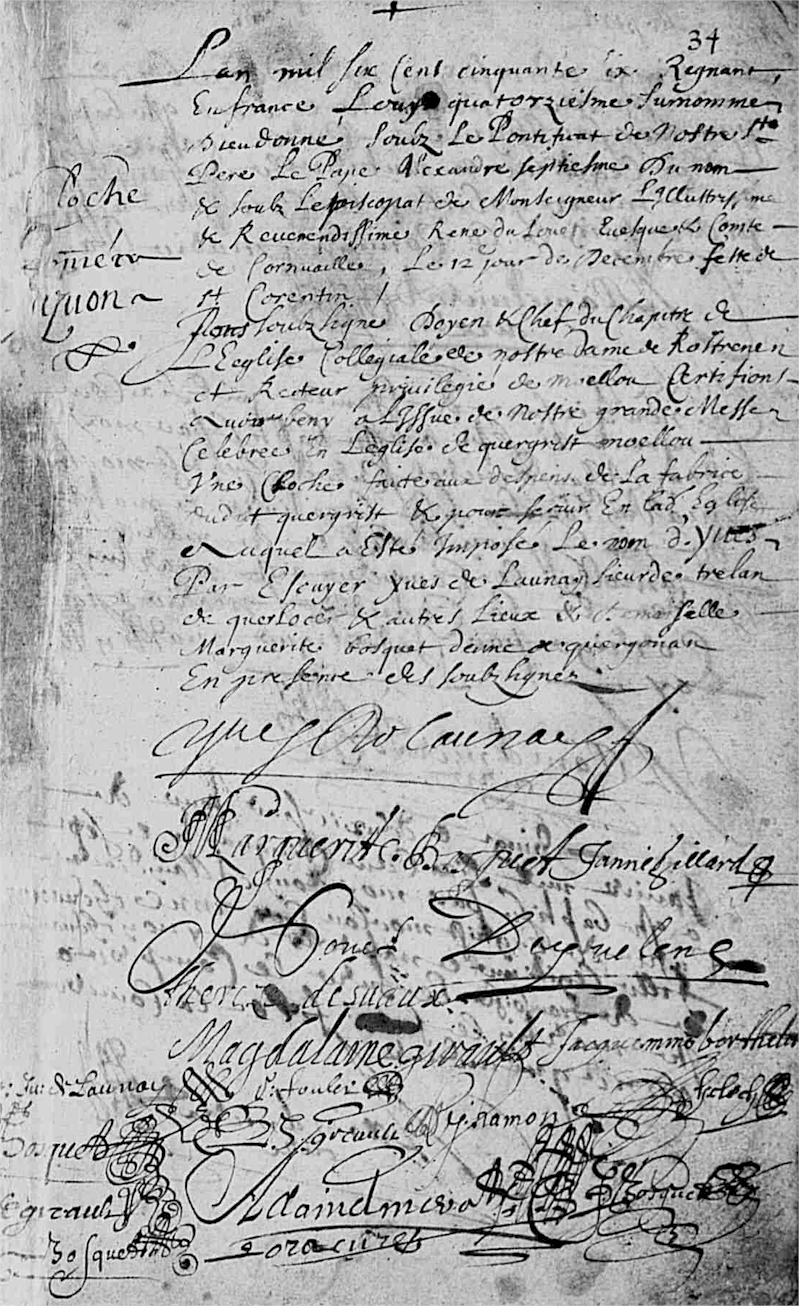 34
Lan mil six Cent cinquante six Regnant
En france Louys quatorziesme surnomme
Dieudonne soubz Le Pontificat de Nostre St
Pere Le Pape Alexandre septiesme Du nom
& soubz Lepiscopat de Monseigneur Lillustrissime
& Reverendissime Rene du Louet Evesque & Comte
de Cornuaille, Le 12 jour de Decembre feste de
st Corentin
loche
quon
Nous soubzsigne Doyen & Chef du Chapitre de
LEeglise Collegiale de nostre Dame de Rostrenen
et Recteur privilegie de moellou Certifions
Avoir beny a Lissue de Nostre grande Messe
Celebree En Leglise de quergrist moellou
Vne Cloche faicte aux despens de La fabrice
dudit quergrist & pour servir En lad Eglise
Auquel a Esté Imposé Le nom d'Yves
Par Escuyer Yves de Launay sieur de trelan
de querlocet & autres Lieux & demoiselle
Marguerite bosquet dame de quergonan
En presence des soubzsignez
Yves de Launay
Marguerite Bosquet Janne Gillard
desvaux
Magdalaine girault Jacquemine
de Launay
girault Y ramon
Bosquet
girault Alain
Bosquet